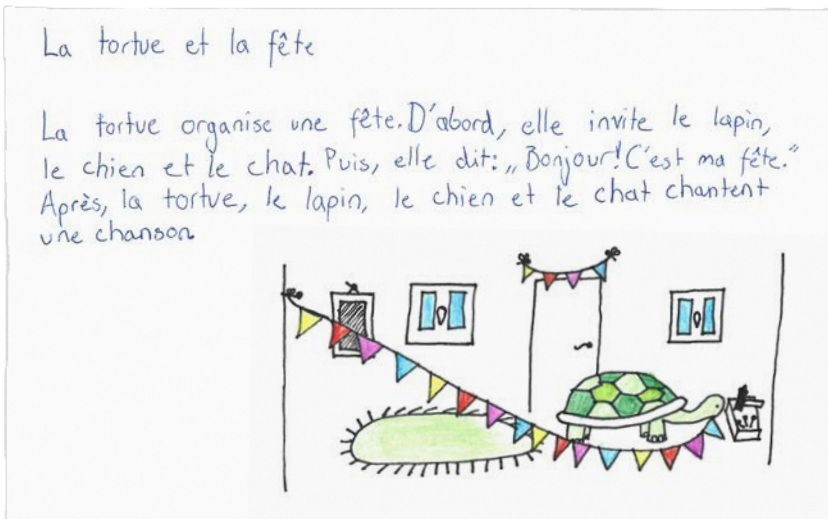 La tortue et la fête
La tortue organise une fête. D'abord, elle invite le lapin,
le chien et le chat. Puis, elle dit: „Bonjour! C'est ma fête.“
Après, la tortue, le lapin, le chien et le chat chantent
une chanson